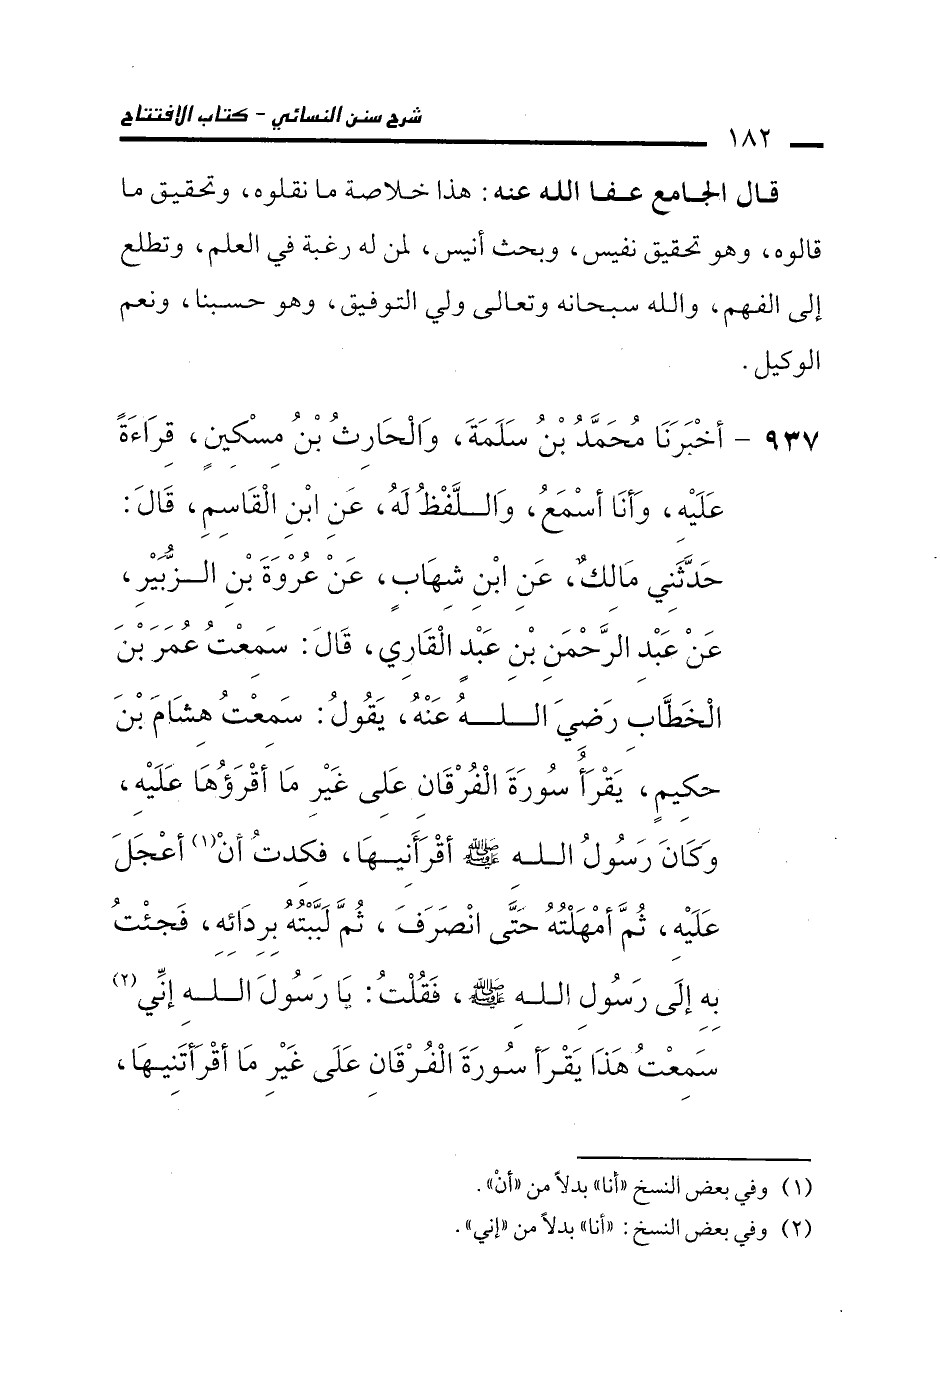 شرح سنن النسائي - كتاب الافتتاح
١٨٢
قال الجامع عفا الله عنه: هذا خلاصة ما نقلوه، وتحقيق ما
قالوه، وهو تحقيق نفيس، وبحث أنيس، لمن له رغبة في العلم، وتطلع
إلى الفهم، والله سبحانه وتعالى ولي التوفيق، وهو حسبنا، ونعم
الوكيل.
٩٣٧ - أَخْبَرَنَا مُحَمَّدُ بْنُ سَلَمَةَ، وَالْحَارِثُ بْنُ مِسْكِينٍ، قِرَاءَةً
عَلَيْهِ، وَأَنَا أَسْمَعُ، وَاللَّفْظُ لَهُ، عَنِ ابْنِ الْقَاسِمِ، قَالَ:
حَدَّثَنِي مَالِكٌ، عَنِ ابْنِ شِهَابٍ، عَنْ عُرْوَةَ بْنِ الزُّبَيْرِ،
عَنْ عَبْدِ الرَّحْمَنِ بْنِ عَبْدٍ الْقَارِي، قَالَ: سَمِعْتُ عُمَرَ بْنَ
الْخَطَّابِ رَضِيَ اللهُ عَنْهُ، يَقُولُ: سَمِعْتُ هِشَامَ بْنَ
حَكِيمٍ، يَقْرَأُ سُورَةَ الْفُرْقَانِ عَلَى غَيْرِ مَا أَقْرَؤُهَا عَلَيْهِ،
وَكَانَ رَسُولُ اللهِ ﷺ أَقْرَأَنِيهَا، فَكِدتُ أَنْ(١) أَعْجَلَ
عَلَيْهِ، ثُمَّ أَمْهَلْتُهُ حَتَّى انْصَرَفَ، ثُمَّ لَبَّبْتُهُ بِرِدَائِهِ، فَجِئْتُ
بِهِ إِلَى رَسُولِ اللهِ ﷺ، فَقُلْتُ: يَا رَسُولَ اللهِ إِنِّي(٢)
سَمِعْتُ هَذَا يَقْرَأُ سُورَةَ الْفُرْقَانِ عَلَى غَيْرِ مَا أَقْرَأْتَنِيهَا،
(١) وفي بعض النسخ «أنا» بدلاً من «أنْ».
(٢) وفي بعض النسخ: «أنا» بدلاً من «إني».